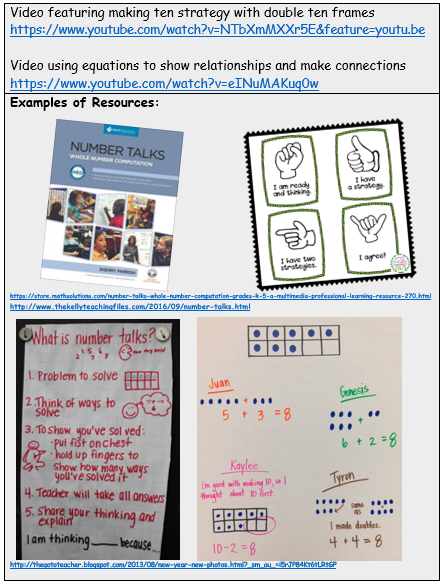 Video featuring making ten strategy with double ten frames
https://www.youtube.com/watch?v=NTbXmMXXr5E&feature=youtu.be
Video using equations to show relationships and make connections
https://www.youtube.com/watch?v=eINuMAKuq0w
Examples of Resources:
NUMBER TALKS
WHOLE NUMBER COMPUTATION
SHERRY PARRISH
I am ready
and thinking.
I have
a strategy.
I have two
strategies.
I agree!
https://store.mathsolutions.com/number-talks-whole-number-computation-grades-k-5-a-multimedia-professional-learning-resource-270.html
http://www.thekellyteachingfiles.com/2016/09/number-talks.html
What is number talks?
1. Problem to solve
2. Think of ways to
solve
3. To show you've solved:
· put fist on chest
· hold up fingers to
show how many ways
you've solved it
4. Teacher will take all answers
5. Share your thinking and
explain
I am thinking ___ because...
Juan
+
5 + 3 = 8
Genesis
+
6 + 2 = 8
Kaylee
I'm good with making 10, so I
thought about 10 first.
10-2=8
Tyron
same
as
I made doubles.
4+4=8
http://thegototeacher.blogspot.com/2013/08/new-year-new-photos.html?_sm_au_=i5rJP84Kt6tLRtGP